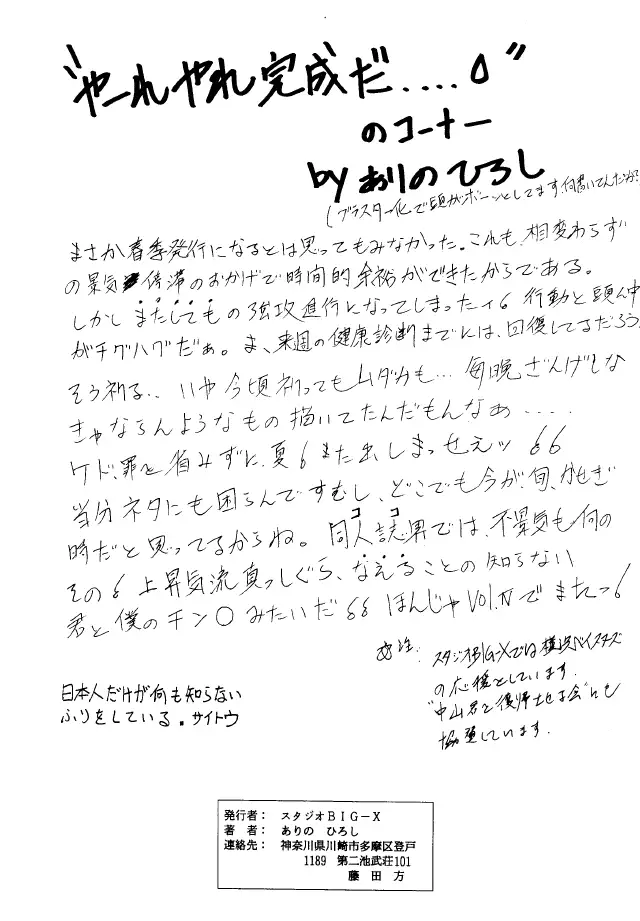 "やーれやれ完成だ....〇"
のコーナー
by ありのひろし
(ブラスター化で頭がボーッとしてます、何書いてんだか?
まさか春季発行になるとは思ってもみなかった。これも、相変わらず
の景気停滞のおかげで時間的余裕ができたからである。
しかしまたしてもの強攻進行になってしまったィ! 行動と頭ん中
がチグハグだぁ。ま、来週の健康診断までには、回復してるだろう
そう祈る.. いや今頃祈ってもムダかも... 毎晩ざんげしな
きゃならんようなもの描いてたんだもんなぁ....
ケド、罪を省みずに、夏!また出しまっせえッ!!
当分ネタにも困らんですむし、どこでも今が旬、かせぎ
時だと思ってるからね。同人誌界では、不景気も何の
ココ
その! 上昇気流真っしぐら、なえることの知らない
君と僕のチン〇みたいだ!! ほんじゃVol.Ⅳでまたっ!
スタジオBIG-Xでは横浜ベイスターズ
の応援をしています.
"中山君を復帰させる会"にも
協賛しています.
日本人だけが何も知らない
ふりをしている。サイトウ
発行者: スタジオBIG-X
著 者: ありの ひろし
連絡先: 神奈川県川崎市多摩区登戸
1189 第二池武荘101
藤 田 方